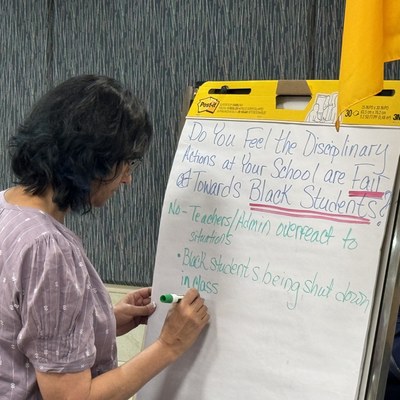 Post-it
30
3M
Do You Feel the Disciplinary
Actions at Your School are Fair
Towards Black Students?
No - Teachers/Admin overreact to
situations
• Black students being shut down
in Mass